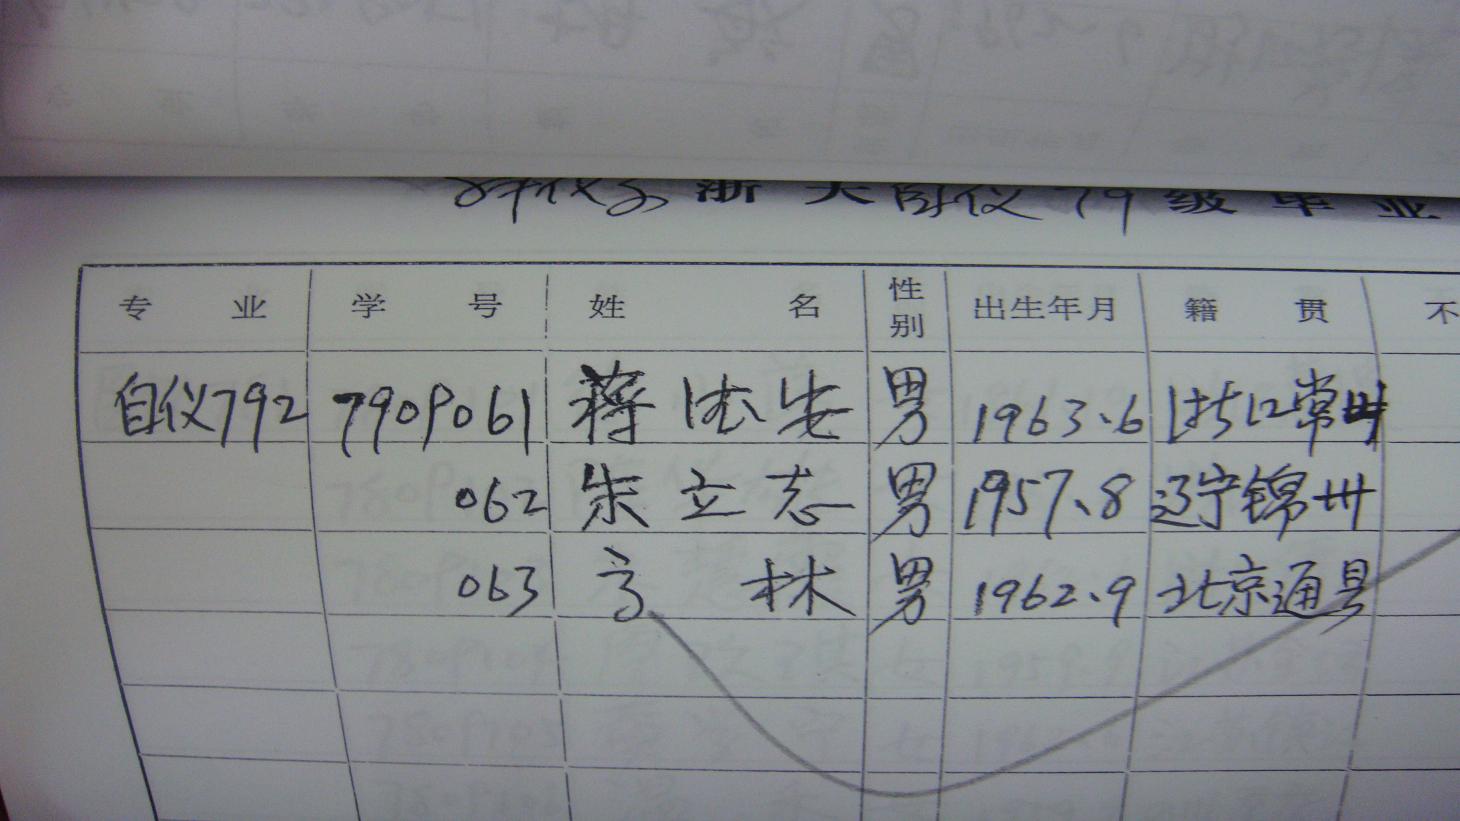 浙大自仪79级毕业
专业 学号 姓名 性别 出生年月 籍贯 不
自仪792 7909061 蒋 男 1963.6 浙江常州
062 朱立志 男 1957.8 辽宁锦州
063 高林 男 1962.9 北京通县